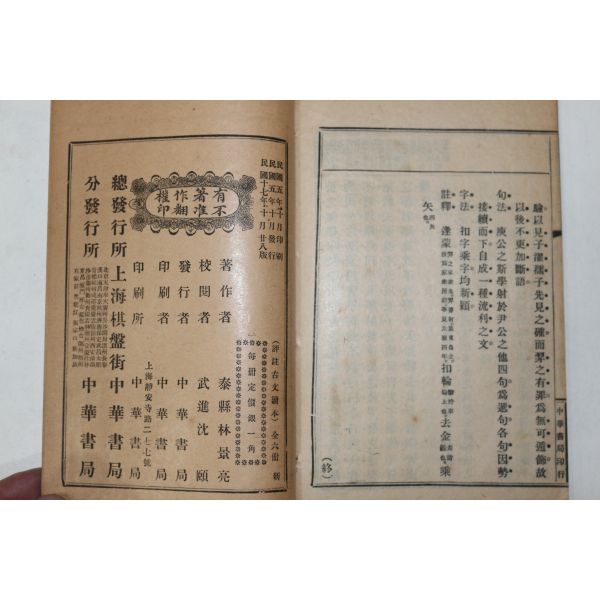 驗以見子濯孺子先見之確而羿之有罪爲無可遁飾故
以後不更加斷語
句法　庾公之斯學射於尹公之他四句爲遞句各句因勢
接續而下自成一種流利之文
字法　扣字乘字均新穎
註釋　逢蒙
扣輪
去金
乘
矢
(終)
中華書局印行
民國五年十月印刷
民國五年十月發行
民國十七年十一月廿八版
有不著准作翻權印
(評註古文讀本)全六册
每册定價銀一角
著作者　泰縣林景亮
校閱者　武進沈頤
發行者　中華書局
印刷者　中華書局
上海靜安寺路二七七號
印刷所　中華書局
總發行所　上海棋盤街　中華書局
分發行所　中華書局